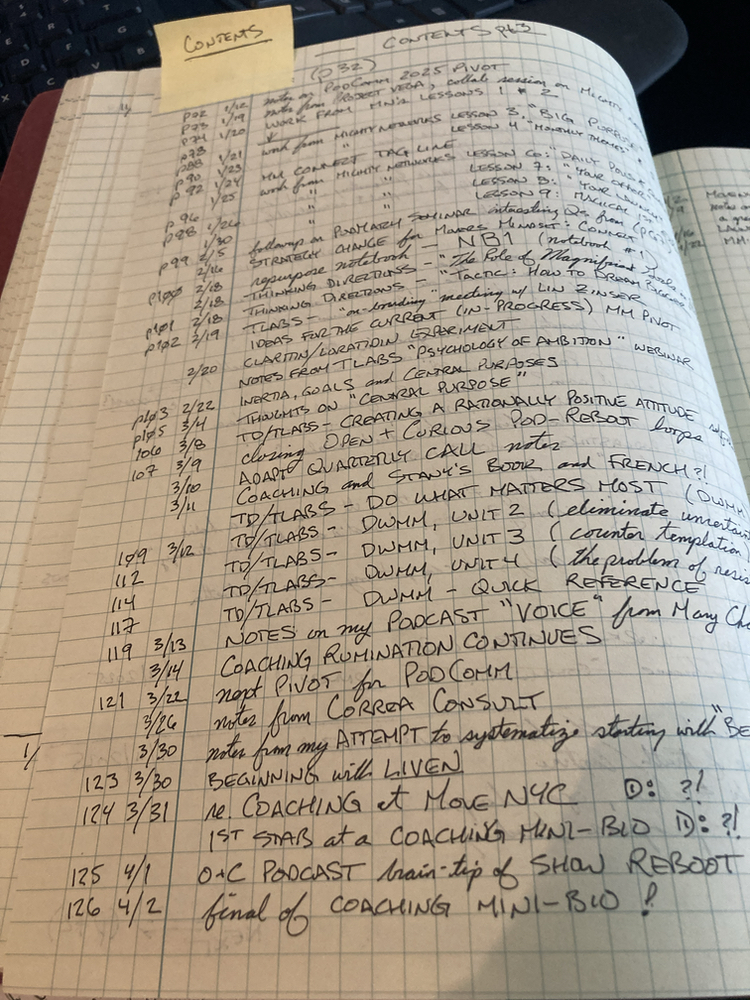 CONTENTS
CONTENTS pt3
(p32)
notes on PODCOMM 2025 PIVOT
p73 1/19 notes from PROJECT VEGA, collab session on MIGHTY
p74 1/20 WORK FROM MN's LESSONS 1 + 2
p78 work from MIGHTY NETWORKS LESSON 3 "BIG PURPOSE"
p88 1/21 " " LESSON 4 "MONTHLY THEMES"
p90 1/23 MM CONNECT TAG LINE
p92 1/24 work from MIGHTY NETWORKS LESSON 6: "DAILY POLLS
1/25 " " LESSON 7: "YOUR OFFER
" " LESSON 8: "YOUR LAUNCH
p96 " " LESSON 9: MAGICAL
p88 1/26 followup on PODMATH SEMINAR interesting Qs from
1/30 STRATEGY CHANGE for MOVERS MINDSET: CONNECT
p99 2/5 repurpose notebook — NB1 (notebook #1)
2/16 THINKING DIRECTIONS — "The Role of Magnificent Goals"
p100 2/18 THINKING DIRECTIONS — "TACTIC: HOW TO DREAM
2/18 TLABS — "on-boarding" meeting w/ LIN ZINSER
p101 2/18 IDEAS FOR THE CURRENT (IN-PROGRESS) MM PIVOT
p102 2/19 CLARITIN/LORATIDIN EXPERIMENT
2/20 NOTES FROM TLABS "PSYCHOLOGY OF AMBITION" WEBINAR
INERTIA, GOALS and CENTRAL PURPOSES
p103 2/22 THOUGHTS ON "CENTRAL PURPOSE"
p105 3/4 TD/TLABS — CREATING A RATIONALLY POSITIVE ATTITUDE
106 3/8 closing OPEN + CURIOUS POD-REBOOT loops
107 3/9 ADAPT QUARTERLY CALL notes
3/10 COACHING and STANY'S BOOK and FRENCH?!
3/11 TD/TLABS — DO WHAT MATTERS MOST (DWMM
109 3/12 TD/TLABS — DWMM, UNIT 2 (eliminate uncertain
112 TD/TLABS — DWMM, UNIT 3 (counter temptation
114 TD/TLABS — DWMM, UNIT 4 (the problem of resis
117 TD/TLABS — DWMM — QUICK REFERENCE
119 3/13 NOTES on my PODCAST "VOICE" from Mary Cha
3/14 COACHING RUMINATION CONTINUES
121 3/22 next PIVOT for PODCOMM
3/26 notes from CORREA CONSULT
1/ 3/30 notes from my ATTEMPT to systematize starting with "BE
123 3/30 BEGINNING with LIVEN
124 3/31 re. COACHING at MOVE NYC D: ?!
1ST STAB at a COACHING MINI-BIO D: ?!
125 4/1 O+C PODCAST brain-tip of SHOW REBOOT
126 4/2 final of COACHING MINI-BIO !